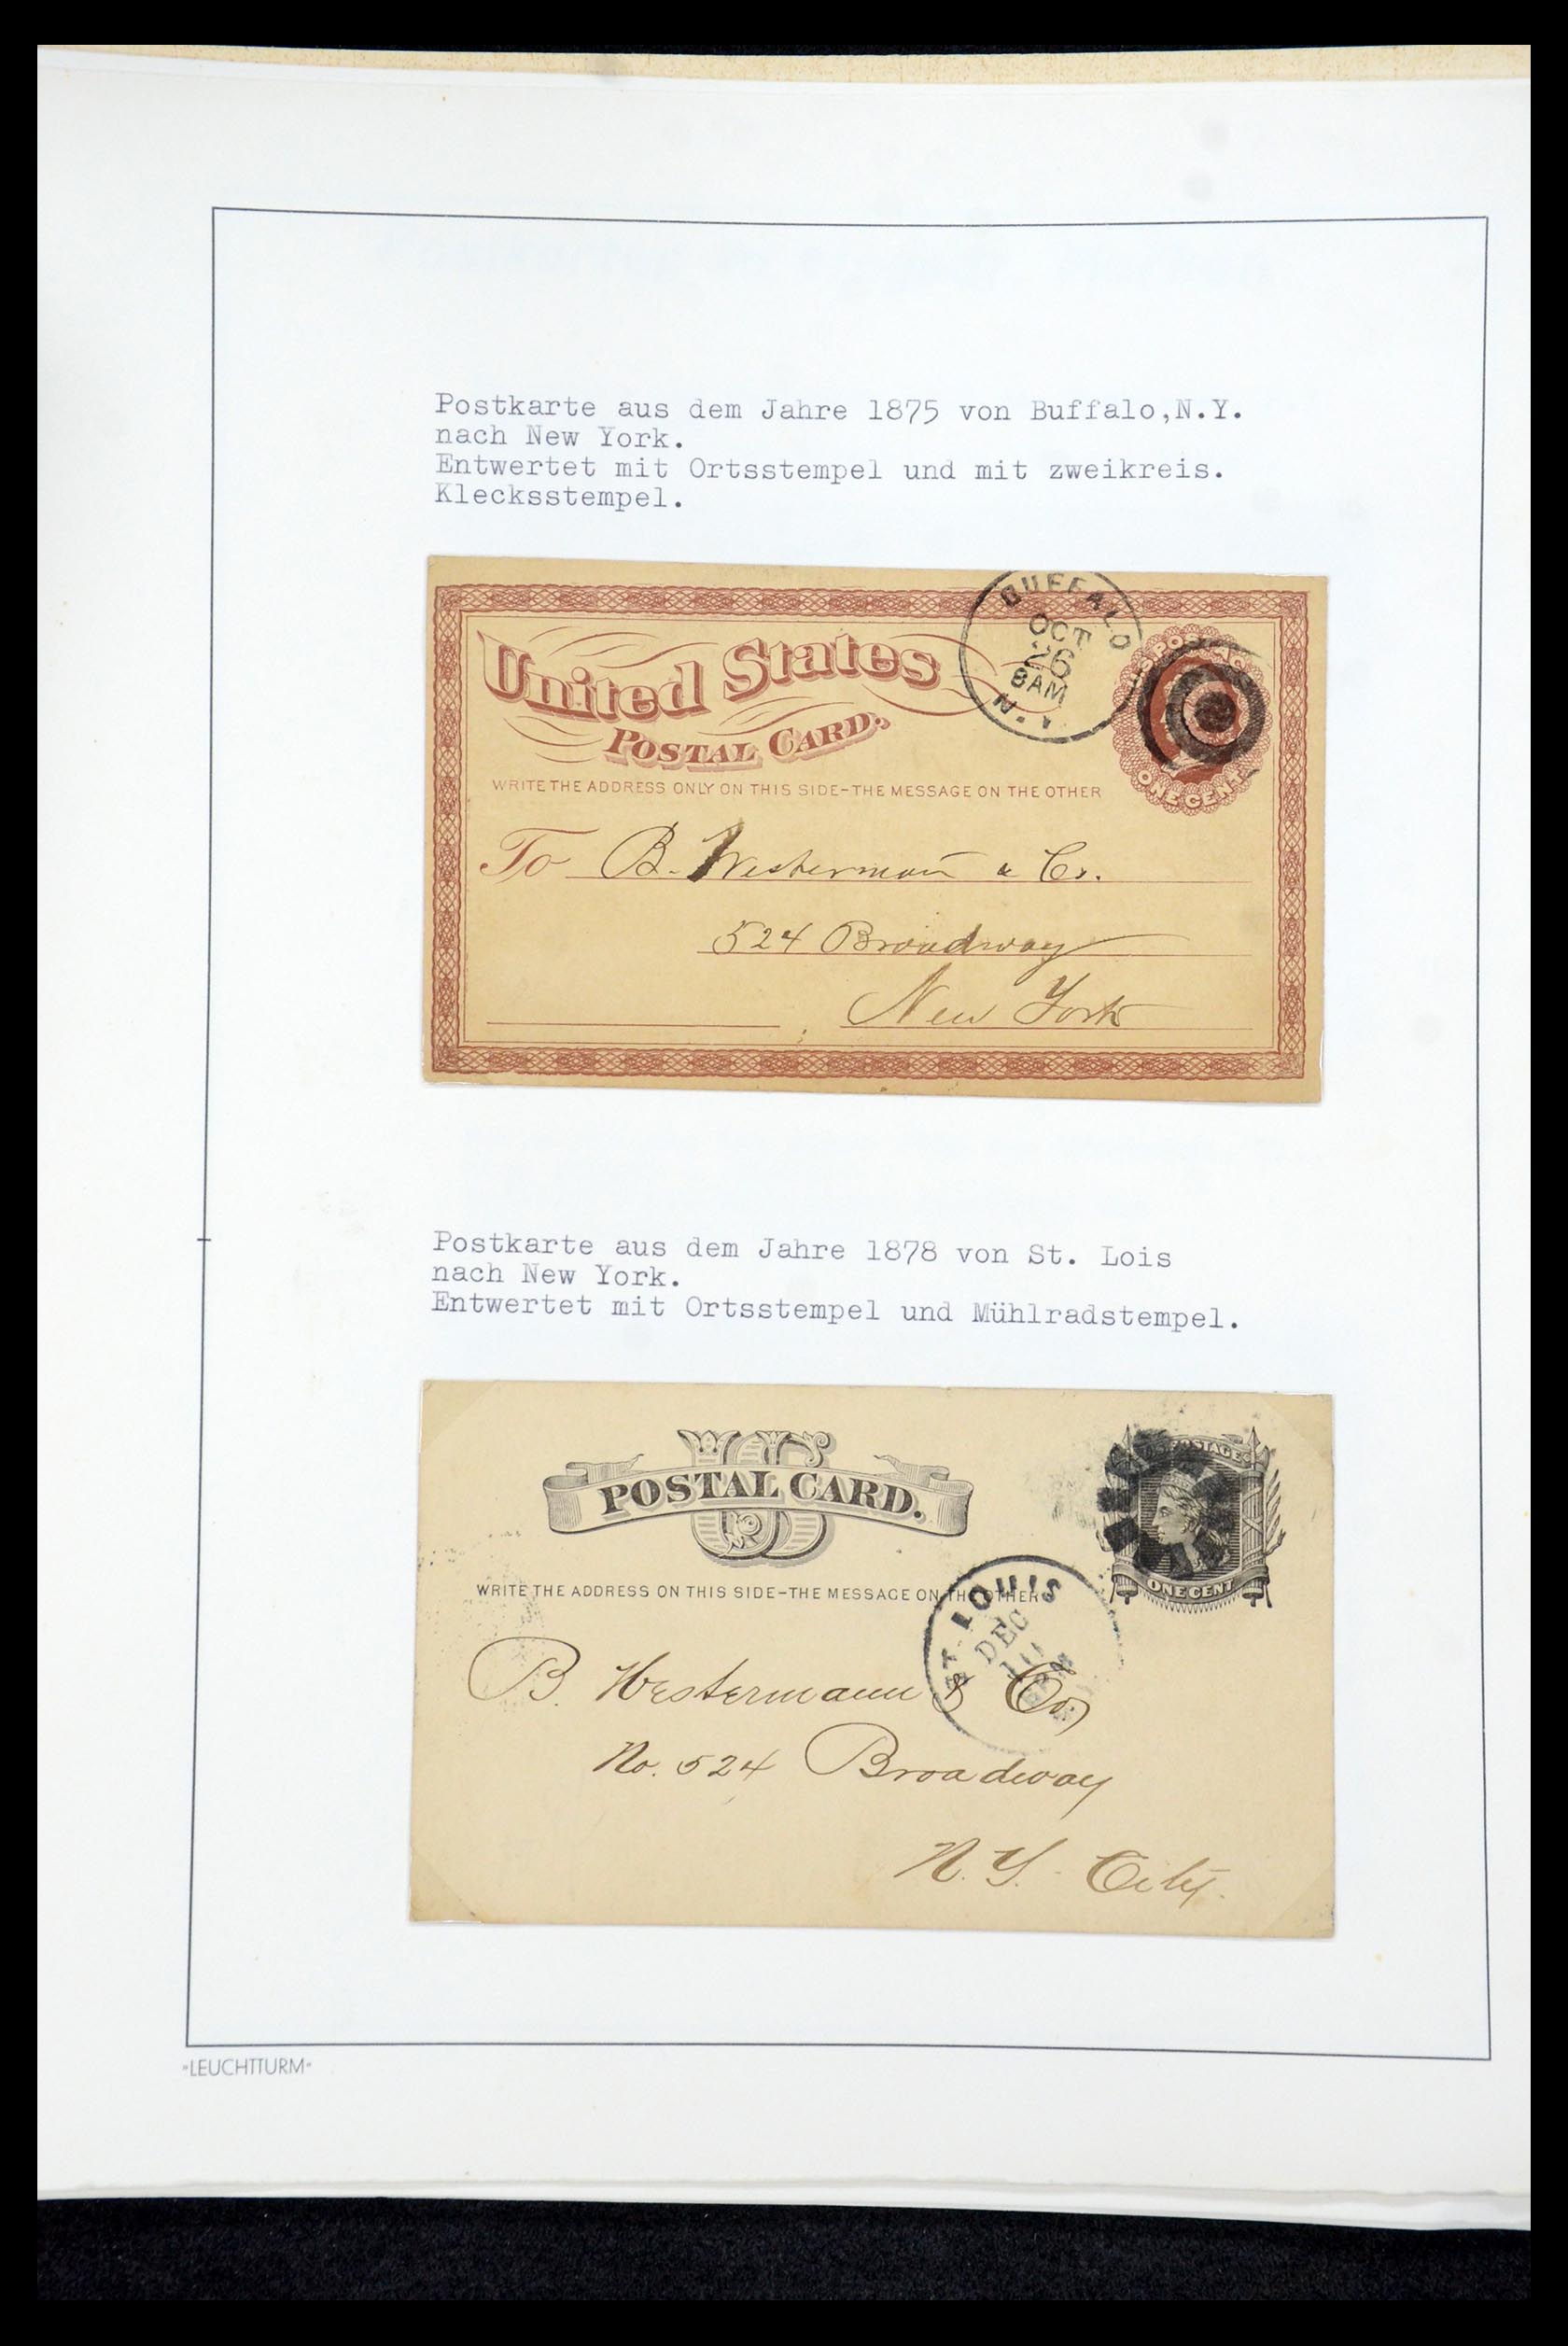 Postkarte aus dem Jahre 1875 von Buffalo,N.Y.
nach New York.
Entwertet mit Ortsstempel und mit zweikreis.
Klecksstempel.
BUFFALO
OCT
26
8AM
N.
United States
POSTAL CARD.
U.S. POSTAGE
ONE CENT
WRITE THE ADDRESS ONLY ON THIS SIDE-THE MESSAGE ON THE OTHER
To B. Westermann & Co.
524 Broadway
New York
Postkarte aus dem Jahre 1878 von St. Lois
nach New York.
Entwertet mit Ortsstempel und Mühlradstempel.
US
POSTAL CARD.
POSTAGE
ONE CENT
WRITE THE ADDRESS ON THIS SIDE-THE MESSAGE ON THE OTHER
ST. LOUIS
DEC
B. Westermann & Co
No. 524 Broadway
N.Y. City.
"LEUCHTTURM"